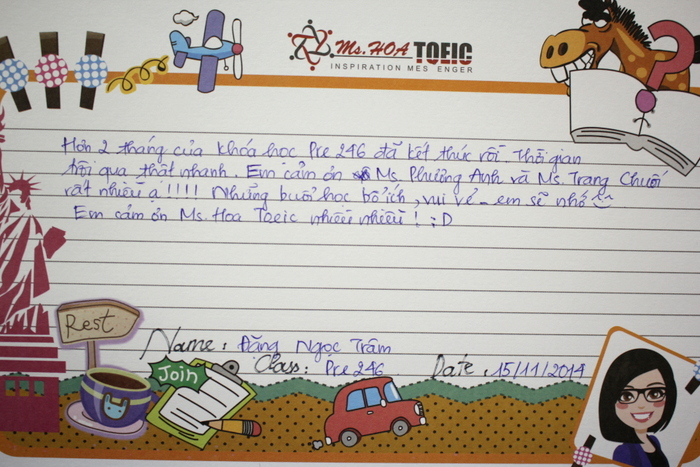 Ms. HOA TOEIC
INSPIRATION MES ENGER
Hơn 2 tháng của khóa học Pre 246 đã kết thúc rồi. Thời gian
trôi qua thật nhanh. Em cảm ơn Ms. Phương Anh và Ms. Trang Chuối
rất nhiều ạ !!!! Những buổi học bổ ích, vui vẻ em sẽ nhớ
Em cảm ơn Ms. Hoa Toeic nhiều nhiều ! :D
Rest
Name: Đặng Ngọc Trâm
Join
Class: Pre 246 Date: 15/11/2014